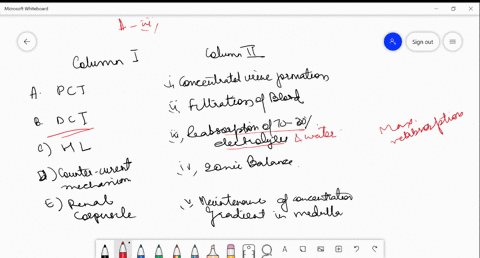 Microsoft Whiteboard
A - iii,
Sign out
Column I
Column II
A. PCT
B. DCT
C) HL
D) Counter-current
mechanism
E) Renal
Corpuscle
i, Concentrated urine formation
ii, Filtration of Blood
iii, Reabsorption of 70-80%
electrolytes & water
iv, Ionic Balance
v, Maintenance of concentration
gradient in medulla
Max.
reabsorption